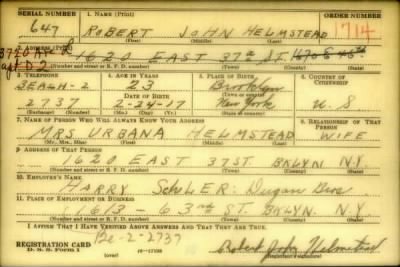 SERIAL NUMBER 1. NAME (Print) ORDER NUMBER
647 ROBERT JOHN HELMSTEAD 1714
(First) (Middle) (Last)
2. ADDRESS (Print)
1620 EAST 37th ST.
(Number and street or R. F. D. number) (Town) (County) (State)
3. TELEPHONE 4. AGE IN YEARS 5. PLACE OF BIRTH 6. COUNTRY OF CITIZENSHIP
BEACH-2 23 Brooklyn
DATE OF BIRTH (Town or county)
2737 2-24-17 New York U. S
(Exchange) (Number) (Mo.) (Day) (Yr.) (State or country)
7. NAME OF PERSON WHO WILL ALWAYS KNOW YOUR ADDRESS 8. RELATIONSHIP OF THAT PERSON
MRS URBANA HELMSTEAD WIFE
(Mr., Mrs., Miss) (First) (Middle) (Last)
9. ADDRESS OF THAT PERSON
1620 EAST 37 ST. BKLYN N.Y.
(Number and street or R. F. D. number) (Town) (County) (State)
10. EMPLOYER'S NAME
HARRY SCHLER: Dugan Bros
11. PLACE OF EMPLOYMENT OR BUSINESS
1613 - 63rd ST. BKLYN. N.Y
(Number and street or R. F. D. number) (Town) (County) (State)
I AFFIRM THAT I HAVE VERIFIED ABOVE ANSWERS AND THAT THEY ARE TRUE.
2-2737
REGISTRATION CARD Robert John Helmstead
D. S. S. Form 1 (over) (Registrant's signature)